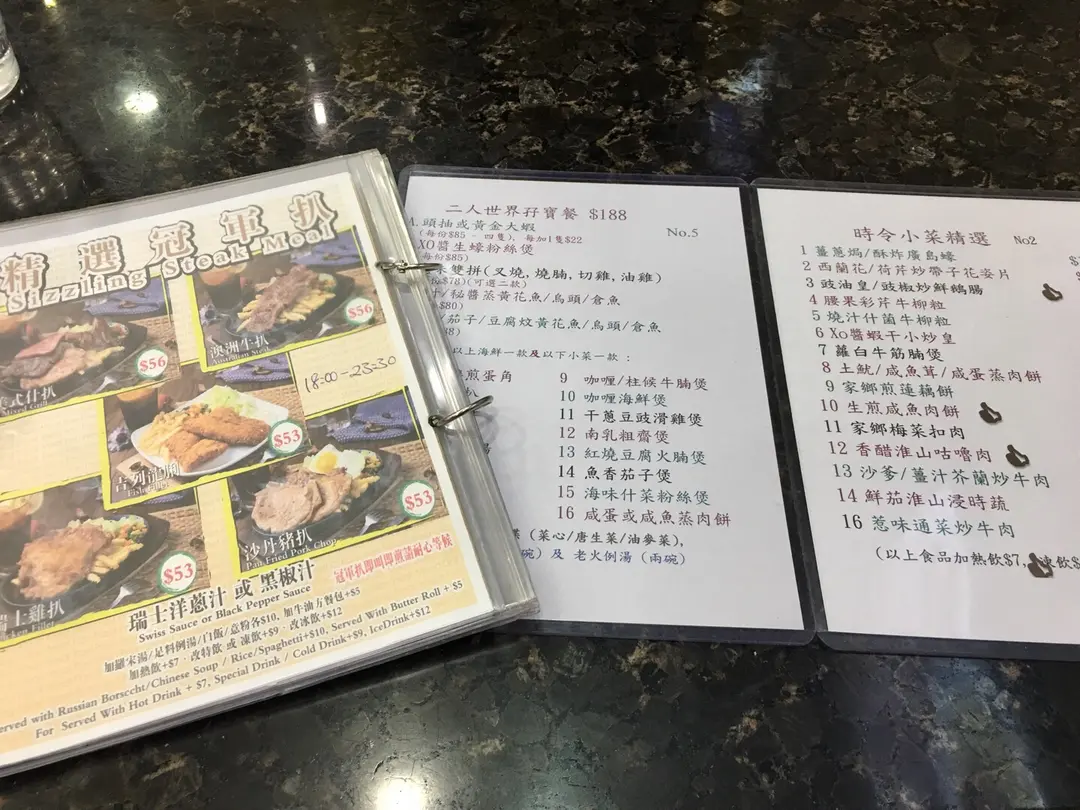 精選冠軍扒
Sizzling Steak Meal
$56
澳洲牛扒
Australian Steak
$56
式什扒
Mixed Grill
18:00-23:30
$53
吉列龍脷
Fish Fillet
$53
沙丹豬扒
Pan Fried Pork Chop
$53
士雞扒
Chicken Fillet
冠軍扒即叫即煎請耐心等候
瑞士洋蔥汁 或 黑椒汁
Swiss Sauce or Black Pepper Sauce
加羅宋湯/足料例湯/白飯/意粉各$10, 加牛油方餐包+$5
加熱飲+$7‧改特飲 或 凍飲+$9‧改冰飲+$12
erved with Russian Borsccht/Chinese Soup / Rice/Spaghetti+$10, Served With Butter Roll + $5
For Served With Hot Drink + $7, Special Drink / Cold Drink+$9, IceDrink+$12
二人世界孖寶餐 $188
No.5
A. 頭抽或黃金大蝦
(每份$85 - 四隻), 每加1隻$22
XO醬生蠔粉絲煲
(每份$85)
雙拼(叉燒, 燒腩, 切雞, 油雞)
$78)(可選二款)
/秘醬蒸黃花魚/烏頭/倉魚
$80)
/茄子/豆腐炆黃花魚/烏頭/倉魚
以上海鮮一款及以下小菜一款 :
煎蛋角
9 咖喱/柱候牛腩煲
10 咖喱海鮮煲
11 干蔥豆豉滑雞煲
12 南乳粗齋煲
13 紅燒豆腐火腩煲
14 魚香茄子煲
15 海味什菜粉絲煲
16 咸蛋或咸魚蒸肉餅
(菜心/唐生菜/油麥菜),
碗) 及 老火例湯 (兩碗)
時令小菜精選 No2
1 薑蔥焗/酥炸廣島蠔
2 西蘭花/荷芹炒帶子花姿片
3 豉油皇/豉椒炒鮮鵝腸
4 腰果彩芹牛柳粒
5 燒汁什菌牛柳粒
6 Xo醬蝦干小炒皇
7 蘿白牛筋腩煲
8 土魷/咸魚茸/咸蛋蒸肉餅
9 家鄉煎蓮藕餅
10 生煎咸魚肉餅
11 家鄉梅菜扣肉
12 香醋淮山咕嚕肉
13 沙爹/薑汁芥蘭炒牛肉
14 鮮茄淮山浸時蔬
16 惹味通菜炒牛肉
(以上食品加熱飲$7, 凍飲$